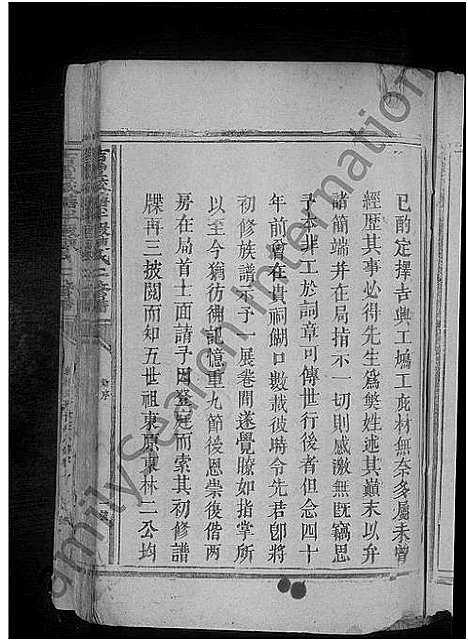 已酌定擇吉興工鳩工庀材無奈多屬未曾
經歷其事必得先生為獘姓述其巔末以弁
諸簡端并在局指示一切則感激無旣竊思
予本非工於詞章可傳世行後者但念四十
年前曾在貴祠餬口數載彼時令先君卽將
初修族譜示予一展卷間遂覺瞭如指掌所
以至今猶彷彿記憶重九節後恩崇後偕兩
房在局首士面請予因登定而索其初修譜
牒再三披閱而知五世祖東原東林二公均
新序
FamilySearch International